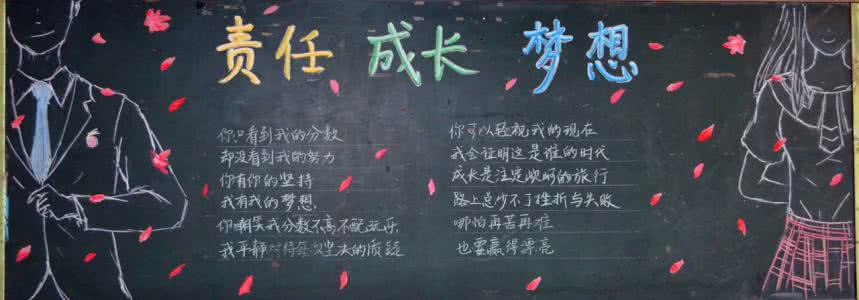 责任 成长 梦想
你只看到我的分数
却没看到我的努力
你有你的坚持
我有我的梦想
你嘲笑我分数不高不配玩乐
我平静对待每次坚决的质疑
你可以轻视我的现在
我会证明这是谁的时代
成长是注定坎坷的旅行
路上是少不了挫折与失败
哪怕再苦再难
也要赢得漂亮